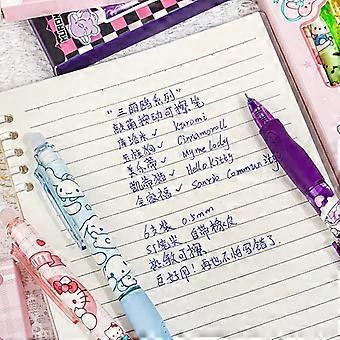 "三丽鸥系列"
酷萌按动可擦笔
库洛米✓ Kuromi
玉桂狗✓ Cinamoroll
美乐蒂✓ My melody
凯蒂猫✓ Hello kitty
全家福✓ Sanrio Community
6支装 0.5mm
ST笔尖 自带橡皮
热敏可擦
巨好用!再也不怕写错了